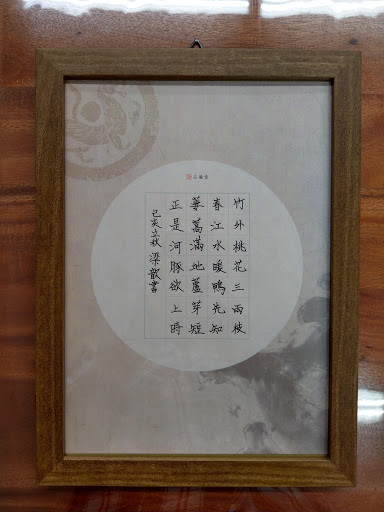 竹外桃花三兩枝
春江水暖鴨先知
蔞蒿滿地蘆芽短
正是河豚欲上時
己亥立秋 梁歆書